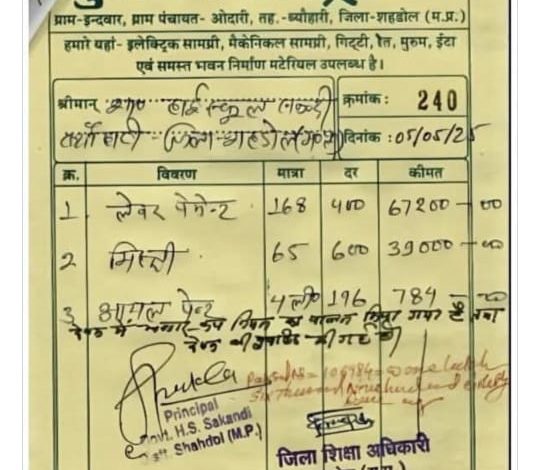 ग्राम-इन्दवार, ग्राम पंचायत- ओदारी, तह.-ब्यौहारी, जिला-शहडोल (म.प्र.)
हमारे यहां- इलेक्ट्रिक सामग्री, मैकेनिकल सामग्री, गिट्टी, रेत, मुरूम, ईटा
एवं समस्त भवन निर्माण मटेरियल उपलब्ध है।
श्रीमान् शा० हाई स्कूल सकन्दी क्रमांक : 240
दिनांक : 05/05/25
क्र. विवरण मात्रा दर कीमत
1. लेबर पेमेन्ट 168 400 67200 - 00
2 मिस्त्री 65 600 39000 - 00
3 आयल पेन्ट 4 ली० 196 784 - 00
Principal
Govt. H.S. Sakandi
Shahdol (M.P.)
Passed Rs = 106984 = 00 one lackh
Six thousand Nine hundred and eighty
जिला शिक्षा अधिकारी